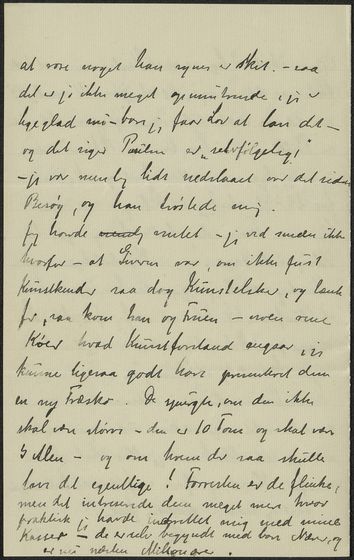 at være noget han synes er Skit. – saa
det er jo ikke meget opmuntrende, jeg er
ligeglad nu – bare jeg faar Lov at lave det –
og det siger Paulsen er „selvfølgeligt"
– jeg var nemlig lidt nedslaaet over det sidste
Besøg, og han trøstede mig.
Jeg havde ventet – jeg ved snedes ikke
hvorfor – at Giveren var, om ikke just
Kunstkender saa dog Kunstelsker, og tænk
før, saa kom han og Fruen – rene
Køer hvad Kunstforstand angaar, jeg
kunne ligesaa godt have præsenteret dem
en ny Fræser. De spurgte, om den ikke
skal være større – den er 10 Tom og skal være
5 Alen – og om hvem der saa skulle
lave det egentlige! Forresten er de flinke,
men det interesserede dem meget mere hvor
praktisk jeg havde indrettet mig med mine
Kasser – de er selv begyndt med bare Næver, og
er nu næsten Millionærer.